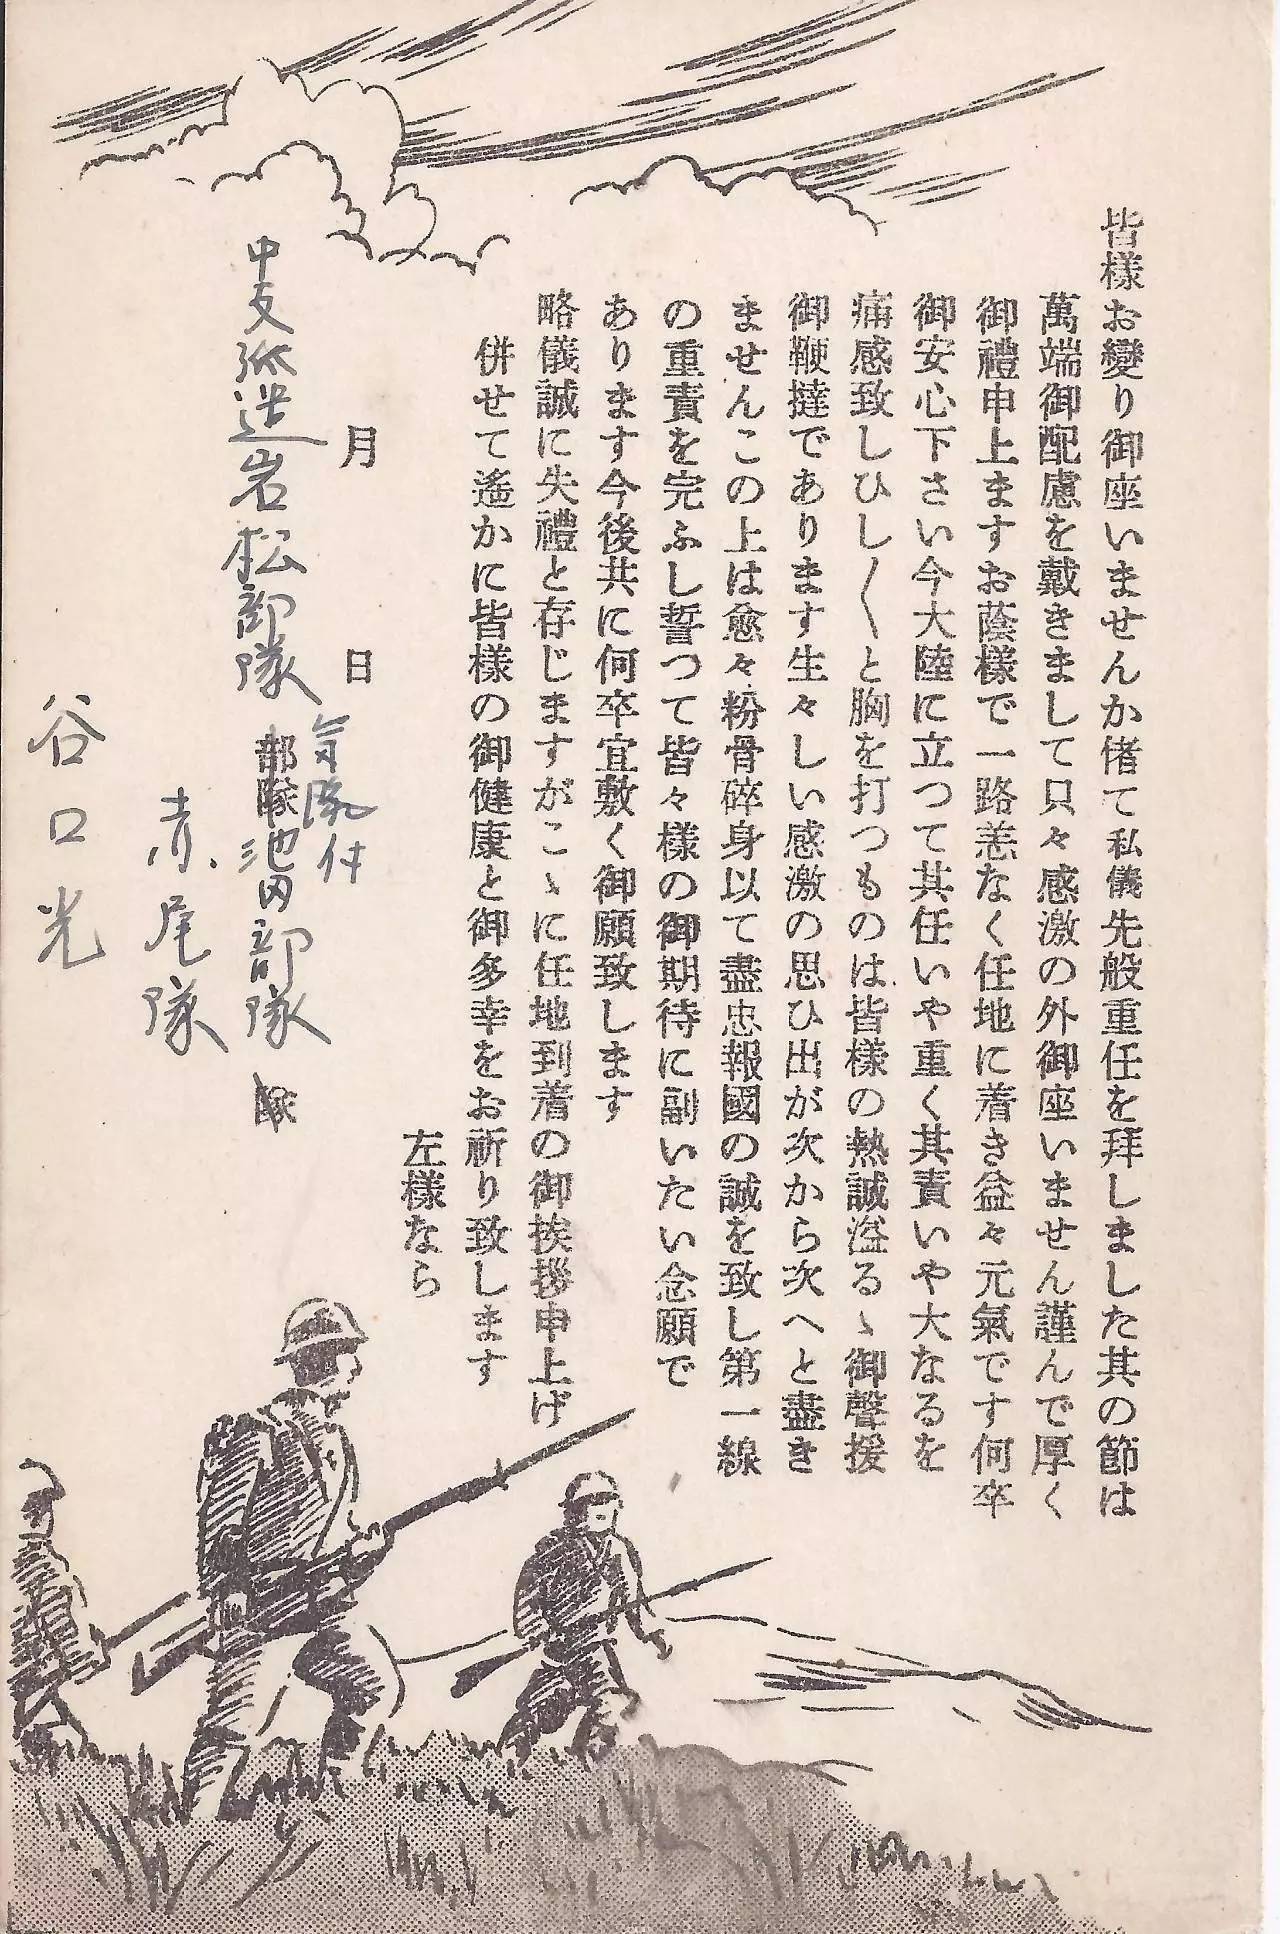 皆樣お變り御座いませんか偖て私儀先般重任を拜しました其の節は
萬端御配慮を戴きまして只々感激の外御座いません謹んで厚く
御禮申上ますお蔭樣で一路恙なく任地に着き益々元氣です何卒
御安心下さい今大陸に立つて其任いや重く其責いや大なるを
痛感致しひし〱と胸を打つものは皆樣の熱誠溢るゝ御聲援
御鞭撻であります生々しい感激の思ひ出が次から次へと盡き
ませんこの上は愈々粉骨碎身以て盡忠報國の誠を致し第一線
の重責を完ふし誓つて皆々樣の御期待に副いたい念願で
あります今後共に何卒宜敷く御願致します
略儀誠に失禮と存じますがこゝに任地到着の御挨拶申上げ
併せて遙かに皆樣の御健康と御多幸をお祈り致します
左樣なら
月 日
中支派遣岩松部隊
氣付
部隊池田部隊 隊
赤尾隊
谷口光